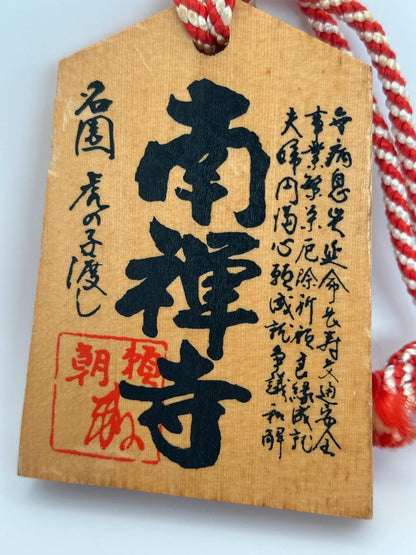 無病息災延命長寿交通安全
事業繁栄厄除祈願良縁成就
夫婦円満心願成就争議和解
南禪寺
名園 虎の子渡し
頼朝